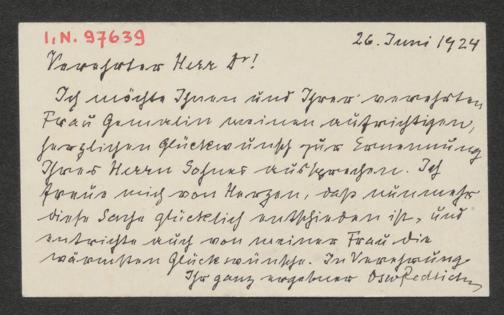 I.N. 97639
26. Juni 1924
Verehrter Herr Dr!
Ich möchte Ihnen und Ihrer verehrten
Frau Gemalin meinen aufrichtigen,
herzlichen Glückwunsch zur Ernennung
Ihres Herrn Sohnes aussprechen. Ich
freue mich von Herzen, daß nunmehr
diese Sache glücklich entschieden ist, und
entrichte auch von meiner Frau die
wärmsten Glückwünsche. In Verehrung
Ihr ganz ergebner Osw Redlich